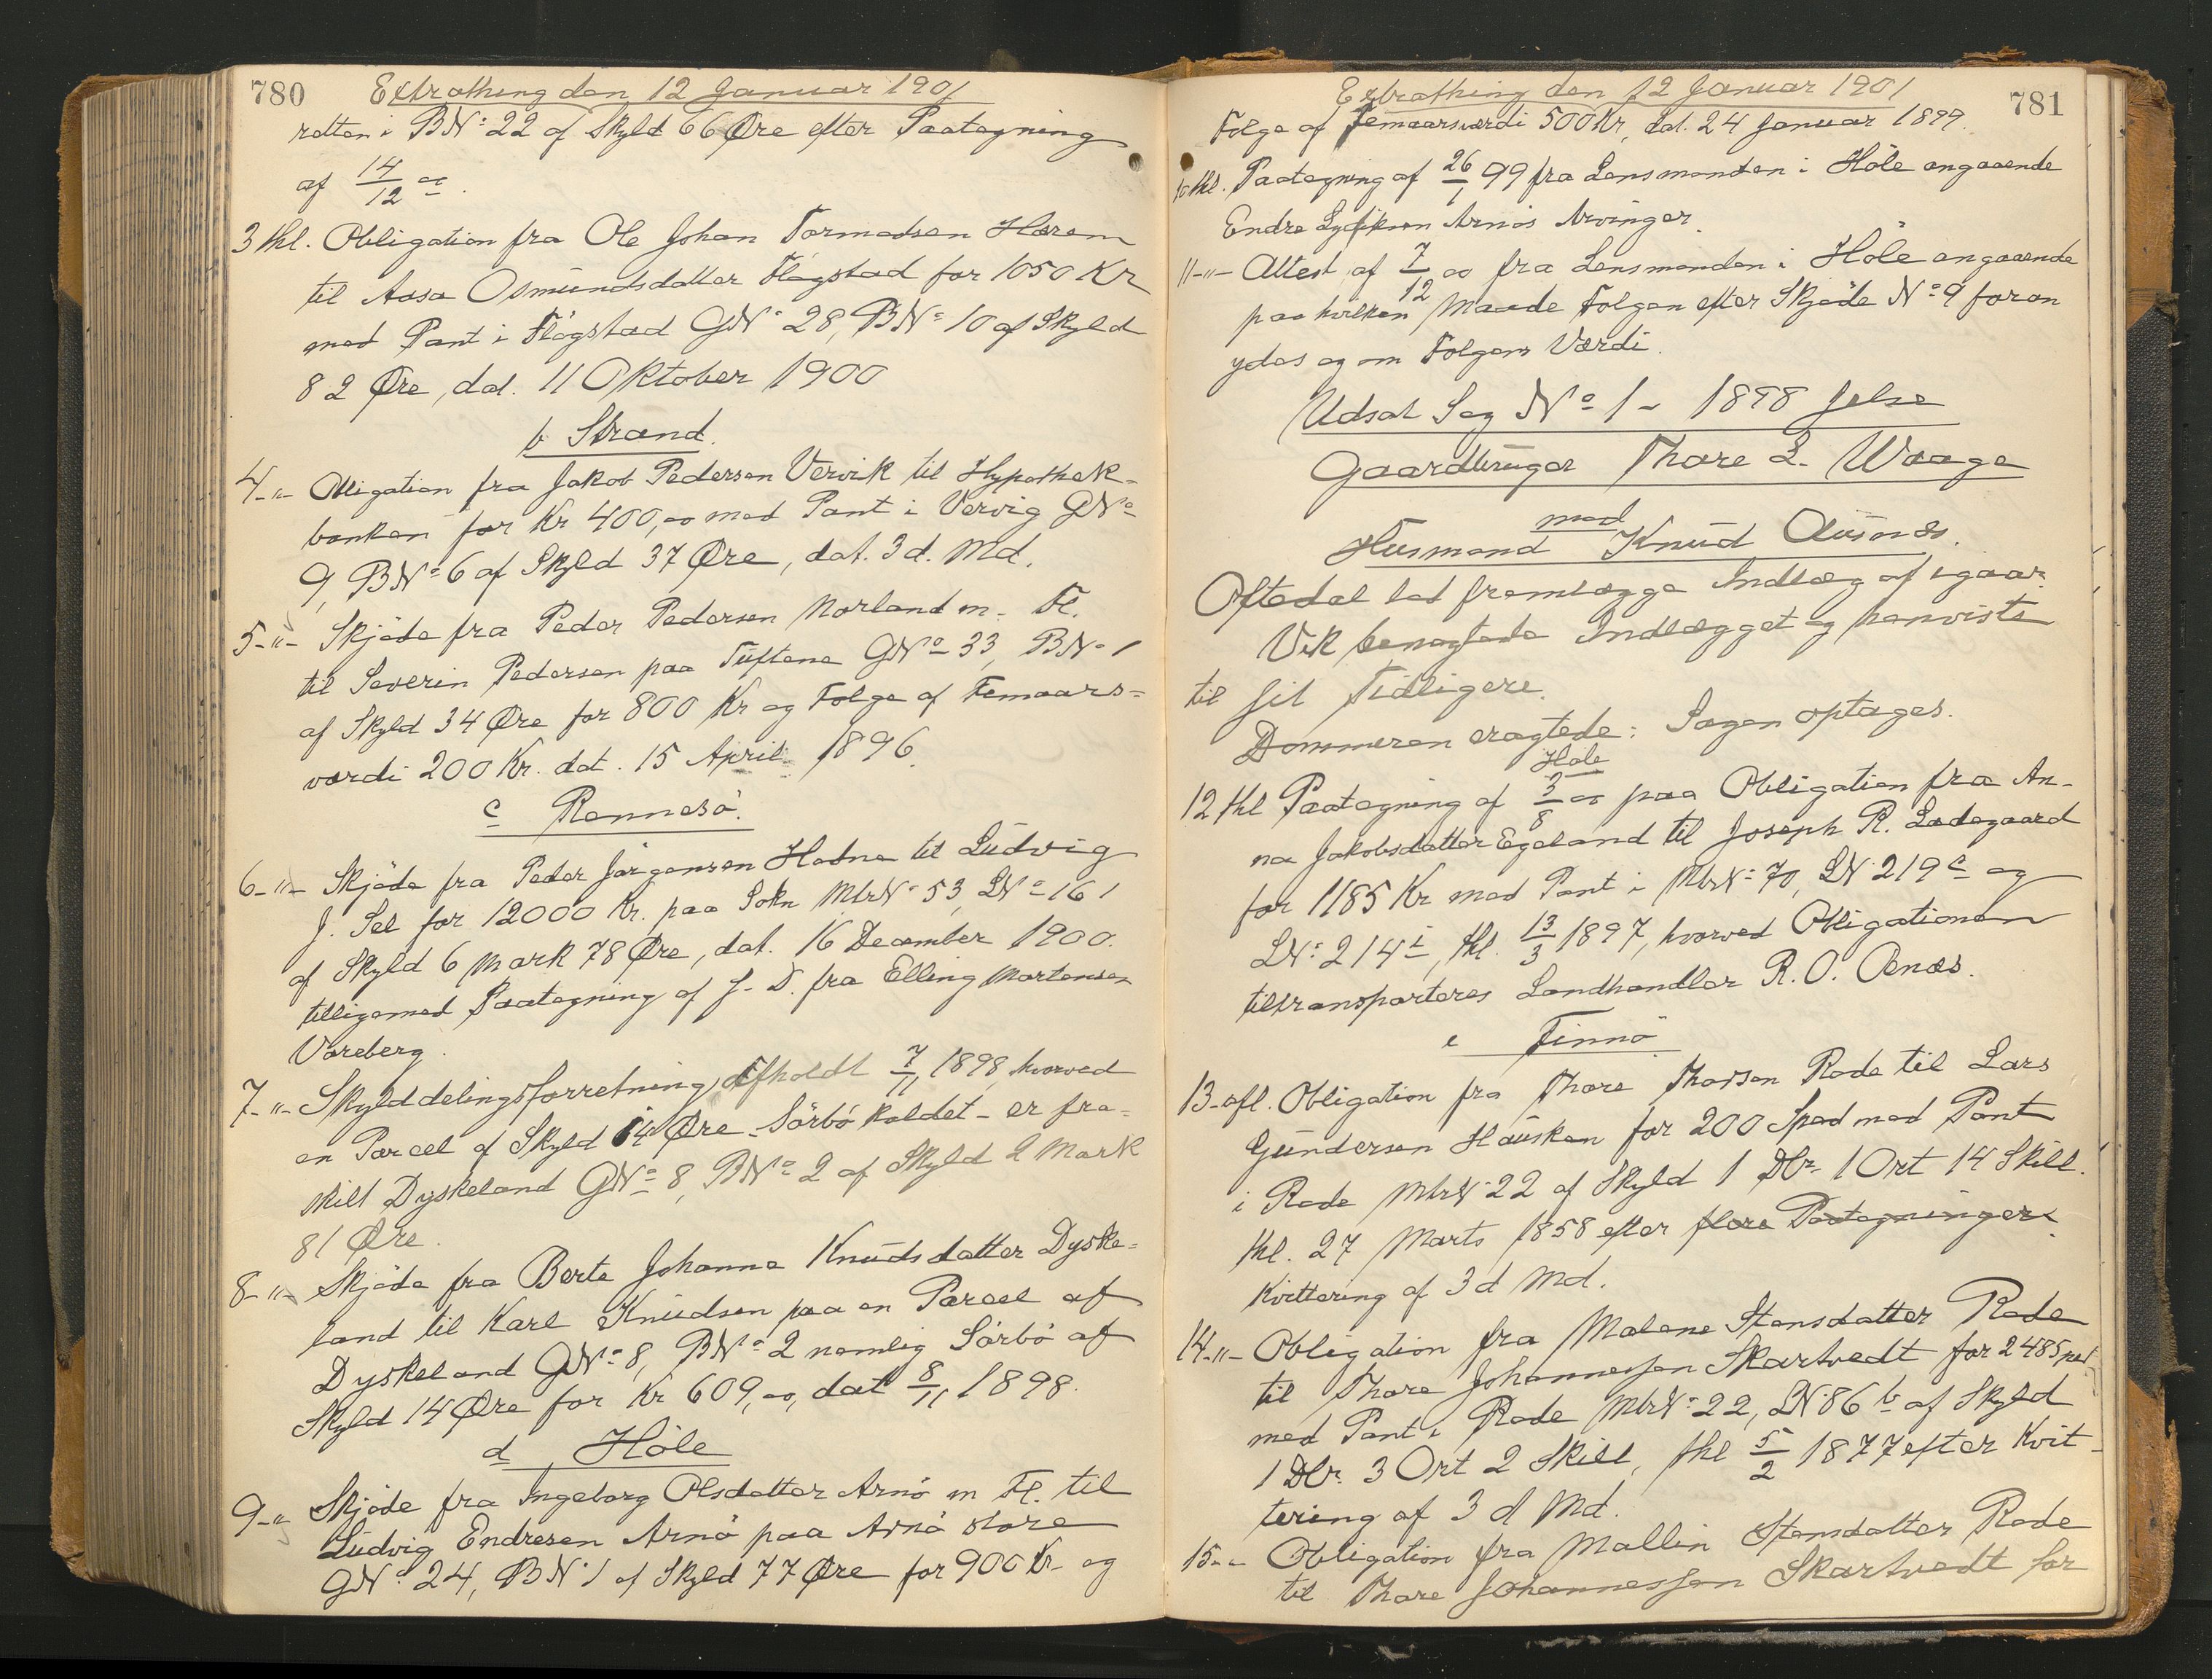 780 Extrathing den 12 Januar 1901
retten i BN: 22 af Skyld 66 Øre efter Paategning
af 14/12 00.
3 thl. Obligation fra Ole Johan Tormodsen Harem
til Aasa Osmundsdatter Flögstad for 1050 Kr
med Pant i Flögstad GN: 28, BN: 10 af Skyld
82 Øre, dat. 11 Oktober 1900
b Strand.
4-"- Obligation fra Jakob Pedersen Vervik til Hypothek-
banken for Kr 400,00 med Pant i Vervig GNo
9, BNo 6 af Skyld 37 Øre, dat. 3 d. Md.
5-"- Skjöde fra Peder Pedersen Norland m. Fl.
til Severin Pedersen paa Tuftene GNo 33, BN: 1
af Skyld 34 Øre for 800 Kr og Folge af Femaars-
værdi 200 Kr. dat. 15 April 1896.
c Rennesö.
6-"- Skjöde fra Peder Jörgensen Hodne til Ludvig
J. Sel for 12000 Kr. paa Sokn MtrNo 53, LNo 161
af Skyld 6 Mark 78 Øre, dat. 16 December 1900.
tilligemed Paategning af s. D. fra Elling Mortensen
Voreberg.
7-"- Skylddelingsforretning, afholdt 7/11 1898, hvorved
en Parcel af Skyld 14 Øre - Sörbö kaldet - er fra-
skilt Dyskeland GNo 8, BNo 2 af Skyld 2 Mark
81 Øre.
8-"- Skjöde fra Berte Johanna Knudsdatter Dyske-
land til Karl Knudsen paa en Parcel af
Dyskeland GNo 8, BNo 2 nemlig Sörbö af
Skyld 14 Øre for Kr 609,00, dat 8/11 1898.
d Höle
9-"- Skjöde fra Ingeborg Olsdatter Arnö m Fl. til
Ludvig Endresen Arnö paa Arnö store
GNo 24, BN: 1 af Skyld 77 Øre for 900 Kr og
Extrathing den 12 Januar 1901 781
Folge af femaarsværdi 500 Kr, dat. 24 Januar 1899.
10 thl. Paategning af 26/1 99 fra Lensmanden i Höle angaaende
Endre Arnös Arvinger.
11-"- Attest af 7/12 00 fra Lensmanden i Höle angaaende
paa hvilken Maade Folgen efter Skjöde No 9 foran
ydes og om Folgens Værdi.
Udsat Sag No 1 - 1898 Jelse
Gaardbruger Thore L. Waage
mod
Husmand Knud Ausnes.
Oftedal lod fremlægge Indlæg af igaar.
Vik benægtede Indlægget og henviste
til sit Tidligere.
Dommeren eragtede: Sagen optages.
Höle
12 thl Paategning af 3/8 00 paa Obligation fra An-
na Jakobsdatter Egeland til Joseph R. Ladegaard
for 1185 Kr med Pant i MtrN: 70, LN 219 c og
LN: 214 i, thl. 13/3 1897, hvorved Obligationen
tiltransporteres Landhandler R. O.Ænæs.
e Finnö
13- afl. Obligation fra Thore Thorsen Rode til Lars
Gundersen Hausken for 200 Spd med Pant
i Rode MtrN: 22 af Skyld 1 Dlr. 1 Ort 14 Skill.
thl. 27 Marts 1858 efter flere Paategninger
Kvittering af 3 d Md.
14-"- Obligation fra Malene Stensdatter Rode
til Thore Johannessen Skartvedt for 248 Spd
med Pant i Rode MtrN: 22, LN: 86 b af Skyld
1 Dlr. 3 Ort 2 Skill, thl 5/2 1877 efter Kvit-
tering af 3 d Md.
15-"- Obligation fra Mallin Stensdatter Rode
til Thore Johannessen Skartvedt for